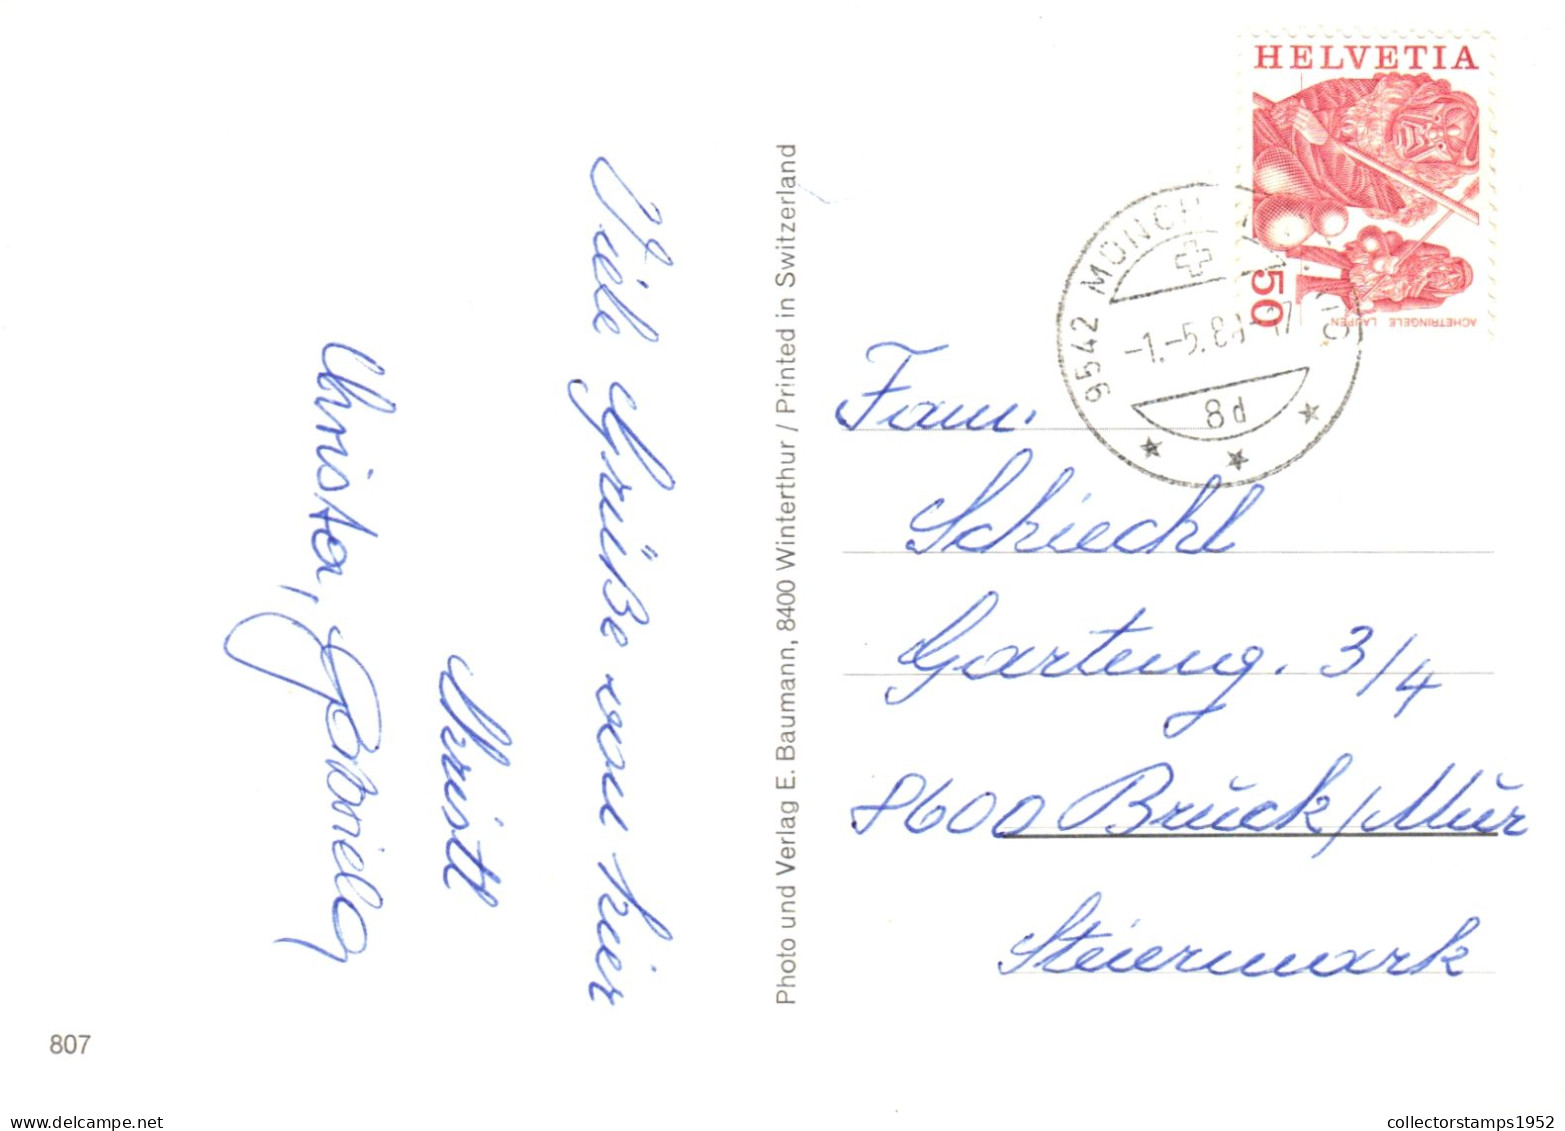 Viele Grüße von hier
Christl
Christa, Gabriela
Photo und Verlag E. Baumann, 8400 Winterthur / Printed in Switzerland
807
HELVETIA
50
ACHETRINGELE LAUPEN
9542 MÜNCH
-1.-5.8
8d
Fam.
Schiechl
Garteng. 3/4
8600 Bruck/Mur
Steiermark
collectorstamps1952